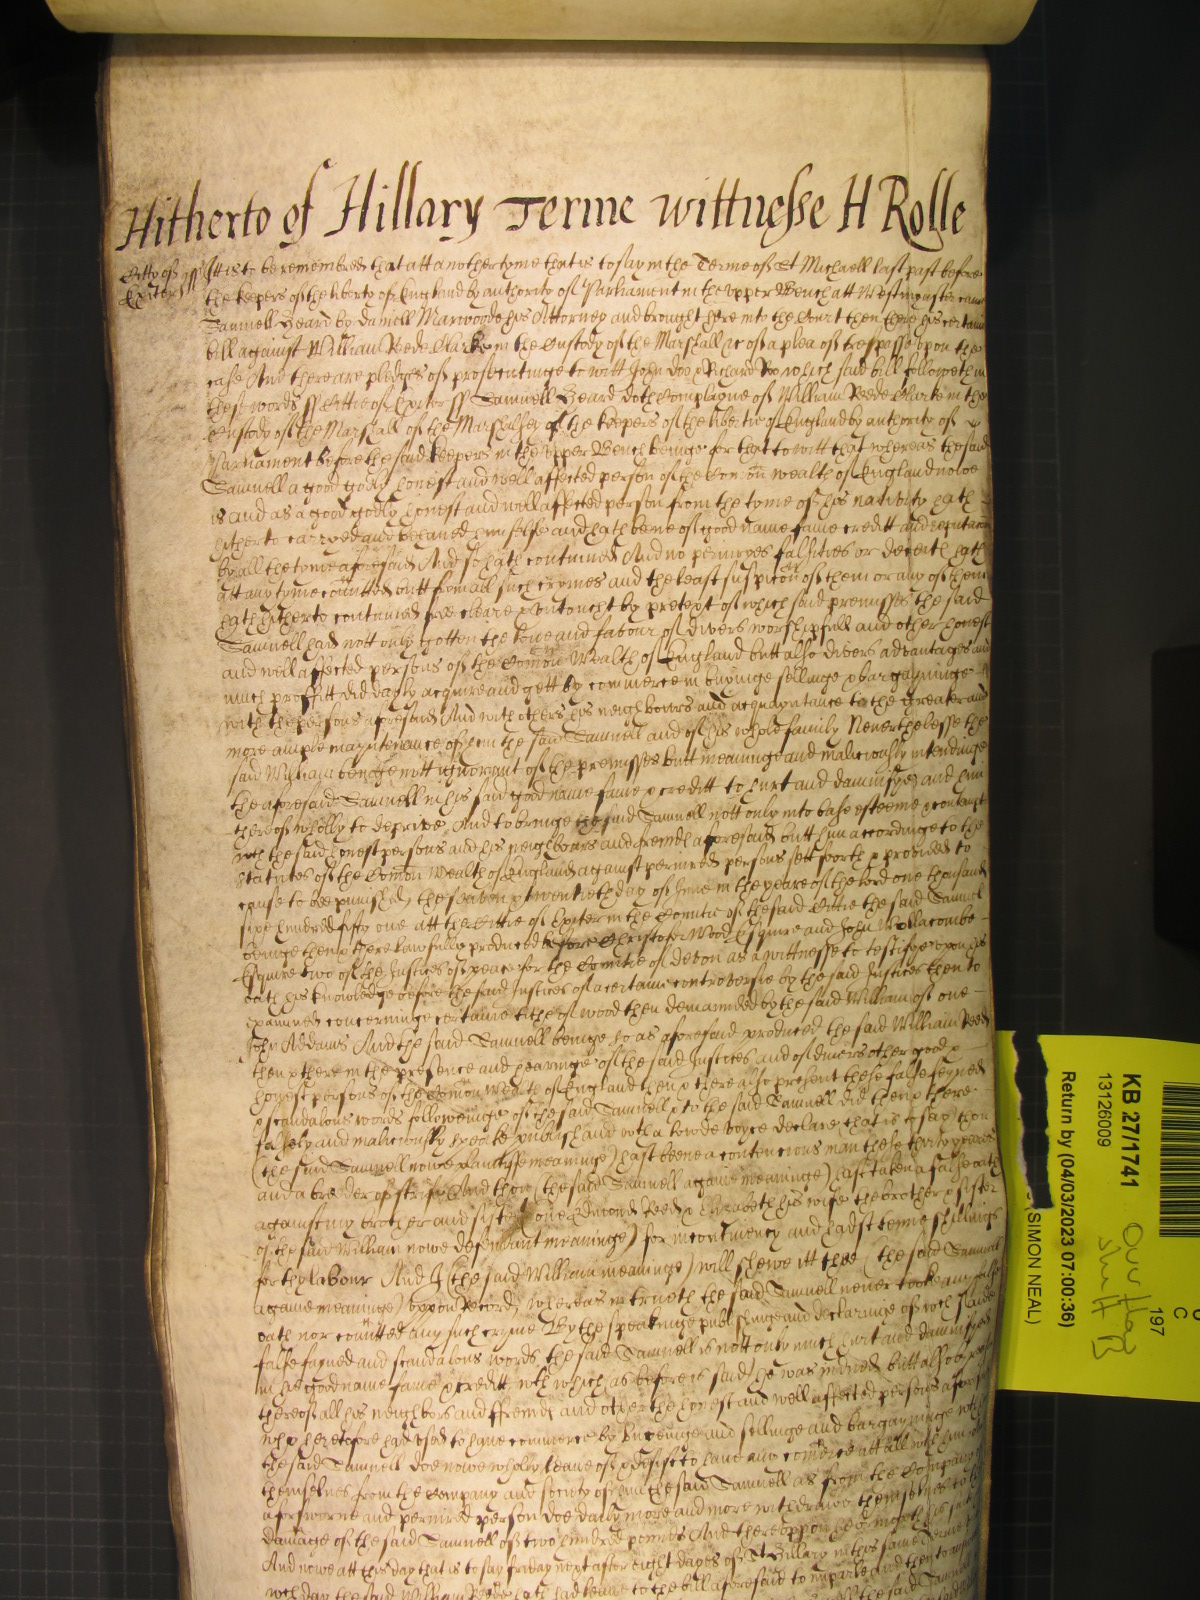 Hitherto of Hillary Terme wittnesse H Rolle
Citty of
Exiter ss
It is to be remembred that att another tyme that is to say in the Terme of St Michaell last past before
the keepers of the liberty of England by authority of Parliament in the upper Bench att Westminster came
Samuell Heard by Daniell Marwoode his Attorney and brought here into the Court then there his certain
bill against William Reede Clarke in the custody of the Marshall &c of a plea of trespasse upon the
case And there are pledges of prosecutinge to witt John doo & Richard Roo which said bill followeth in
these words ss Cittie of Exiter ss Samuell Heard doth Complayne of William Reede Clarke in the
Custody of the Marshall of the Marshalsey of the keepers of the libertie of England by authority of
Parliament before the said keepers in the upper Bench beinge for that to witt that whereas the said
Samuell a good godly honest and well affected person of the Comon wealth of England nowe
is and as a good godly honest and well affected person from the tyme of his nativity hath
hitherto carryed and behaved him selfe and hath bene of good name fame creditt and reputacon
by all the tyme aforesaid And so hath continued And no periuryes falsities or deceith hath
att any tyme comitted butt from all such crymes and the least suspicon of them or any of them
hath hitherto continued free cleare & untoucht by pretext of which said premisses the said
Samuell had nott only gotten the love and favour of divers worshipfull and other honest
and well affected persons of the Comon Wealth of England butt also divers advantages and
much proffitt did dayly acquire and gett by commerce in buyinge sellinge & bargayninge
with the persons aforesaid And with others his neighbours and acquayntance to the greater and
more ample mayntenance of him the said Samuell and of his whole family Neverthelesse the
said William beinge nott ignorant of the premisses butt meaninge and maliciously intendinge
the aforesaid Samuell in his said good name fame & creditt to hurt and damnifye and him
thereof wholly to deprive And to bringe the said Samuell nott only into base esteeme & contempt
with the said honest persons and his neighbours and freinds aforesaid butt him accordinge to the
statutes of the Comon Wealth of England against periured persons sett foorth & provided to
cause to bee punished the seaven & twentieth day of June in the yeare of the lord one thousand
sixe hundred fifty one att the Cittie of Exiter in the Countie of the said Cittie the said Samuel
beinge then & there lawfully produced before Christofer Wood Esquire and John Wollacombe
Esquire two of the Justices of peace for the Countie of Devon as a wittnesse to testifye upon his
oath his knowledge before the said Justices of a certaine controversie by the said Justices then to
examined concerninge certaine tithe of wood then demaunded by the said William of one
John Addams And the said Samuell beinge so as aforesaid produced the said William Reed
then & there in the presence and hearinge of the said Justices and of divers other good &
honest persons of the Comon Wealth of England then & there also present these false feyned
& scandalous words followeinge of the said Samuell & to the said Samuell did then & there
falsely and maliciously speake publish and with a lowde voyce declare that is to say thou
(the said Samuell nowe plantiffe meaninge) hast beene a contencious man these thirty yeares
and a breeder of strife And thou (the said Samuell againe meaninge) hast taken a false oath
against my brother and sister (one Edmond Reede & Elizabeth his wife the brother & sister
of the said William nowe defendant meaninge) for incontinency and hadst tenne shillings
for thy labour And I (the said William meaninge) will shewe itt thee (the said Samuell
againe meaninge) uppon Record whereas in truth the said Samuell never tooke any false
oath nor comitted any such cryme By the speakinge publishinge and declaringe of which
false fayned and scandalous words the said Samuell is nott only much hurt and damnifyed
in his good name fame & creditt with which as before is said he was indued butt also
thereof all his neighbors and freinds and other the honest and well affected persons
who heretofore had used to have commerce by buyinge and sellinge and bargayninge with
the said Samuell doe nowe wholly leave of & desist to have any comerce att all with him
themselves from the Company and society of him the said Samuell as from the Company
a forsworne and periured person doe daily more and more withdrawe themselves to the
damage of the said Samuell of two hundred pounds And thereuppon he bringeth his suit
And nowe att this day that is to say friday next after eight dayes of St Hillary in this same Terme
with day the said William Reede hath had leave to the bill aforesaid to imparle and then to
KB 27/1741
13126009
Return by (04/03/2023 07:00:36)
SIMON NEAL)
197
C